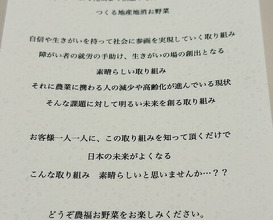 つくる地産地消お野菜
自信や生きがいを持って社会に参画を実現していく取り組み
障がい者の就労の手助け、生きがいの場の創出となる
素晴らしい取り組み
それに農業に携わる人の減少や高齢化が進んでいる現状
そんな課題に対して明るい未来を創る取り組み
お客様一人一人に、この取り組みを知って頂くだけで
日本の未来がよくなる
こんな取り組み　素晴らしいと思いませんか…？？
どうぞ農福お野菜をお楽しみください。